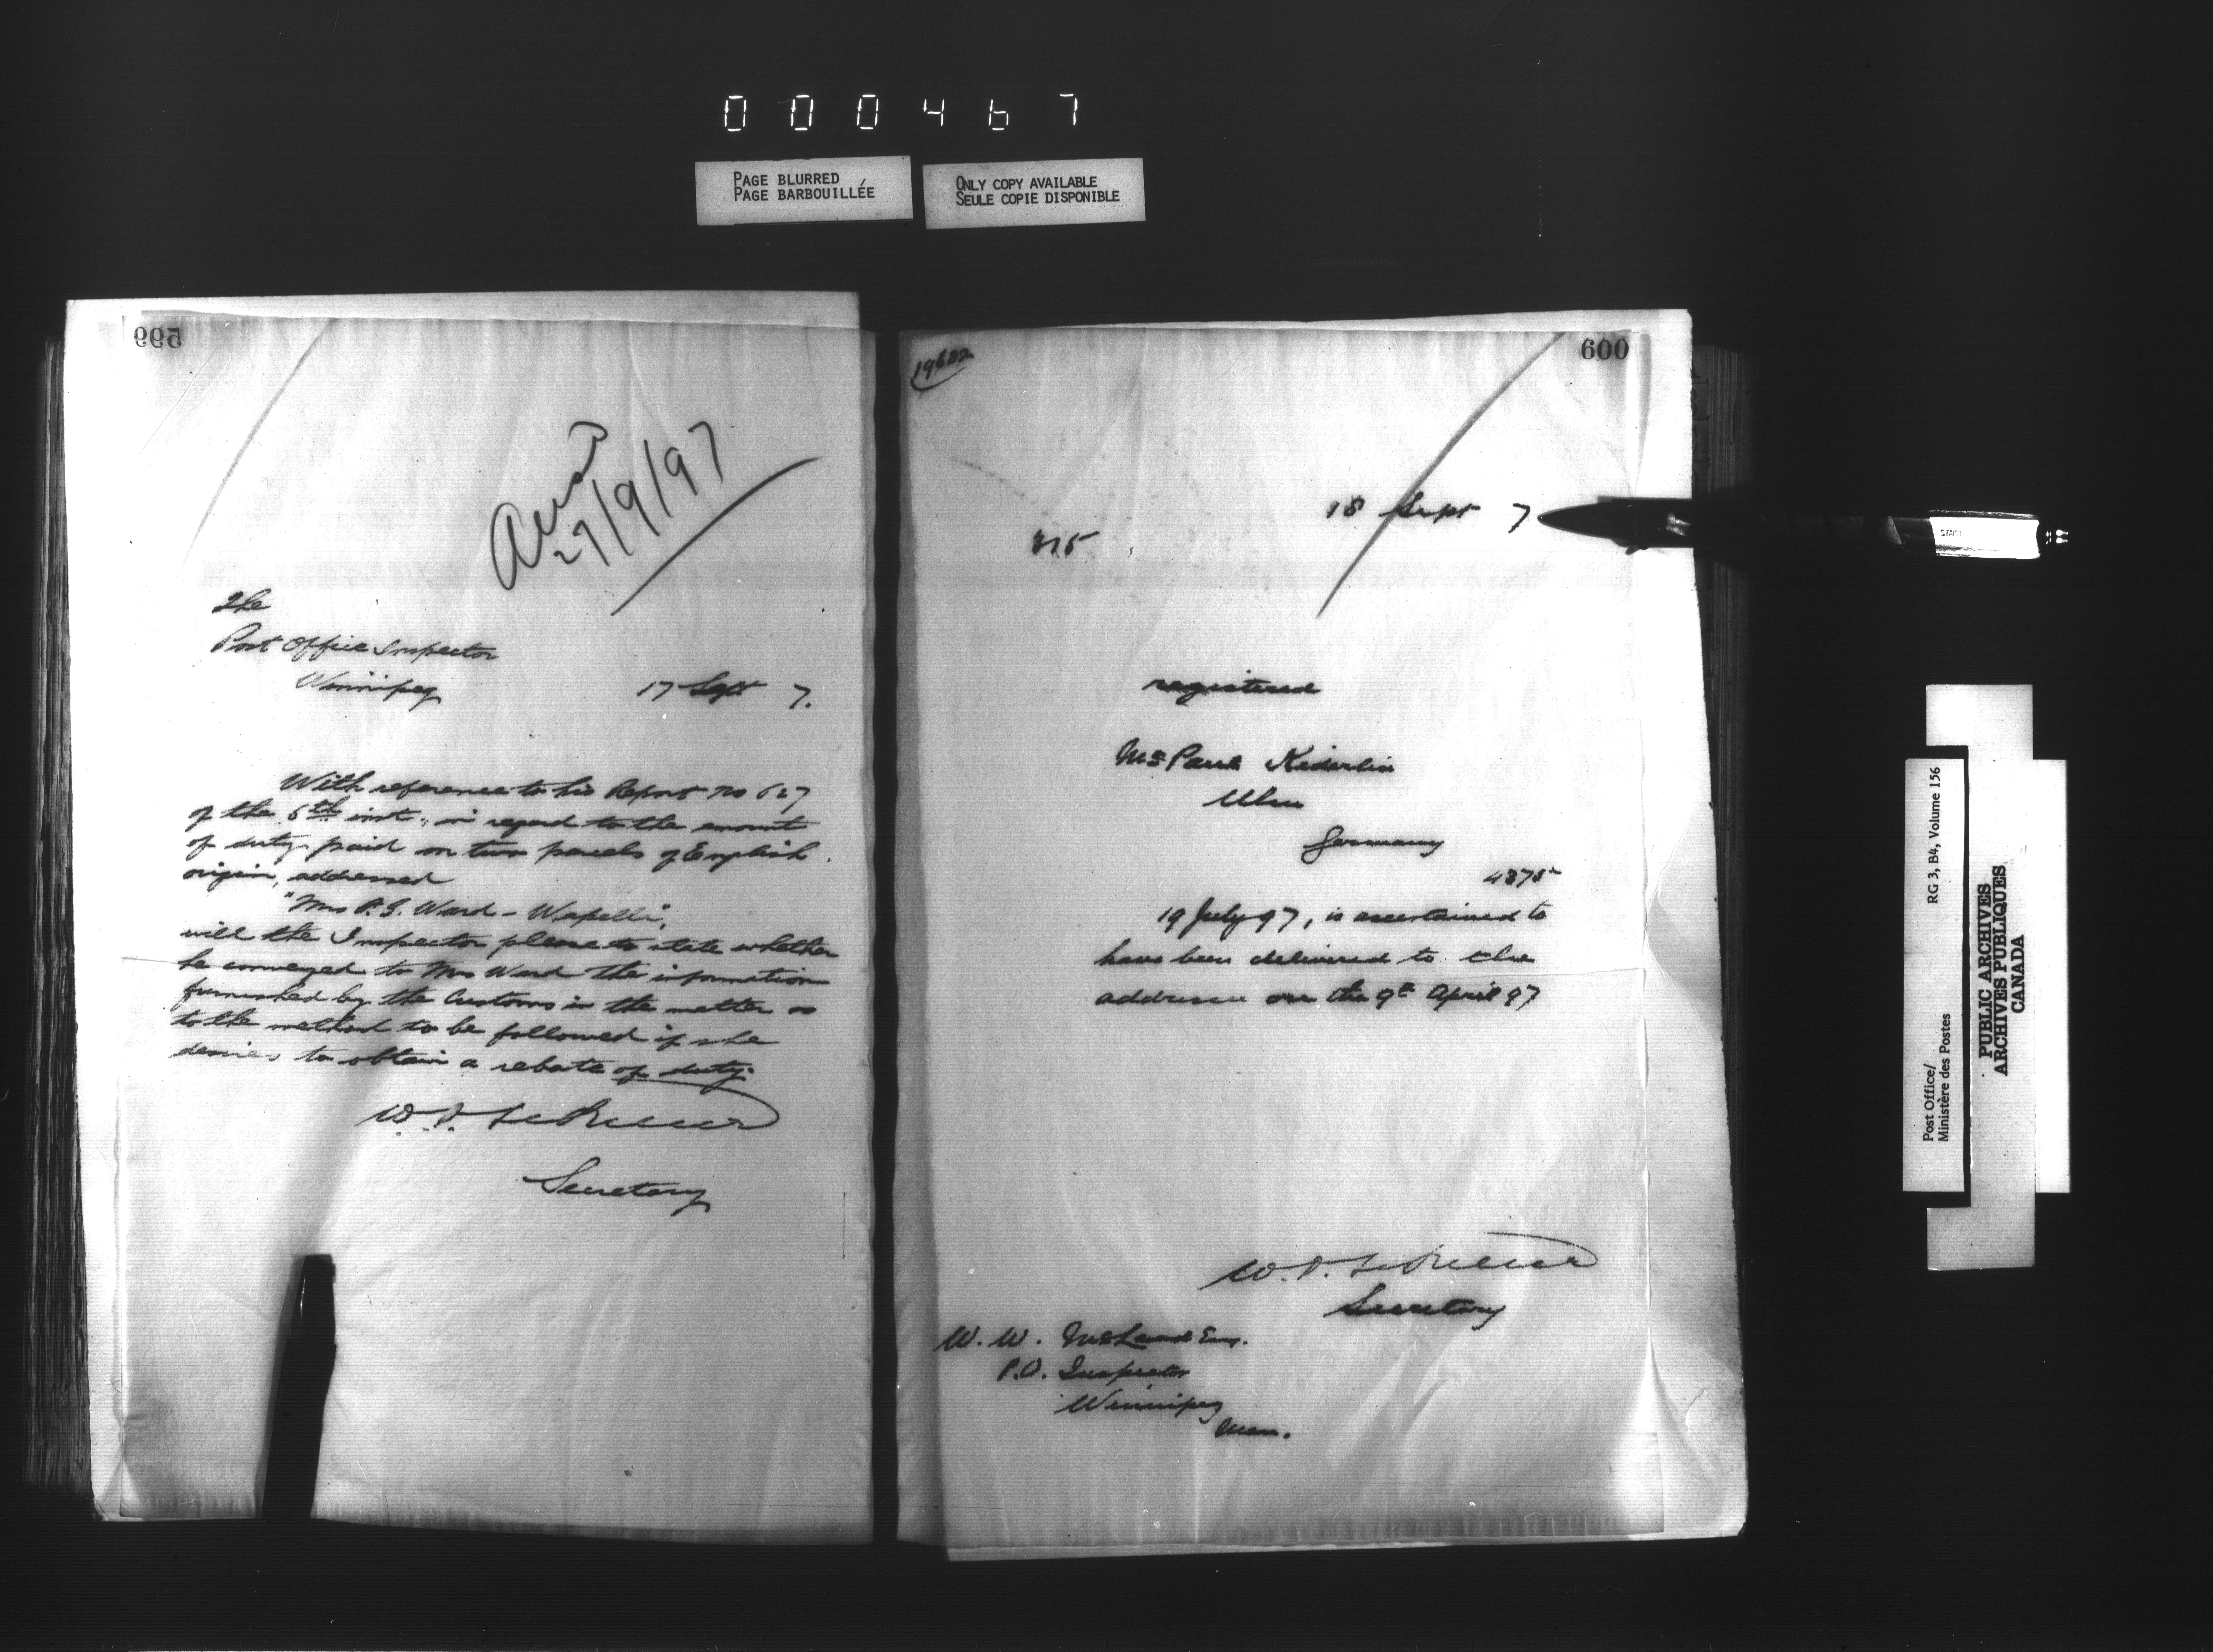 000467
PAGE BLURRED
PAGE BARBOUILLÉE
ONLY COPY AVAILABLE
SEULE COPIE DISPONIBLE
599
27/9/97
The
Post Office Inspector
Winnipeg 17 Sept 7.
With reference to his Report No 627
of the 6th inst., in regard to the amount
of duty paid on two parcels of English
origin, addressed
"Mrs P. G. Ward - Wapella",
will the Inspector please to state whether
he conveyed to Mrs Ward the information
furnished by the Customs in the matter as
to the method to be followed if she
desires to obtain a rebate of duty.
W. D. LeSueur
Secretary
600
18 Sept 7
315
registered
Mr Paul Kiderlin
Ulm
Germany
4375
19 July 97, is ascertained to
have been delivered to the
addressee on the 9th April 97
W. D. LeSueur
Secretary
W. W. McLeod Esq.
P.O. Inspector
Winnipeg
Man.
Post Office/
Ministère des Postes
RG 3, B4, Volume 156
PUBLIC ARCHIVES
ARCHIVES PUBLIQUES
CANADA